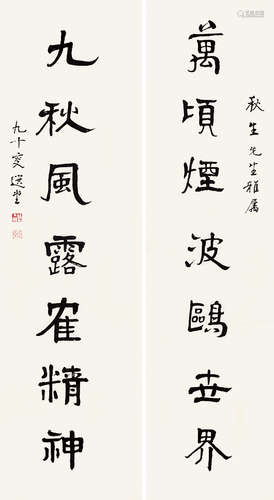 萬頃煙波鷗世界
秋生先生雅属
九秋風露隺精神
九十叟選堂